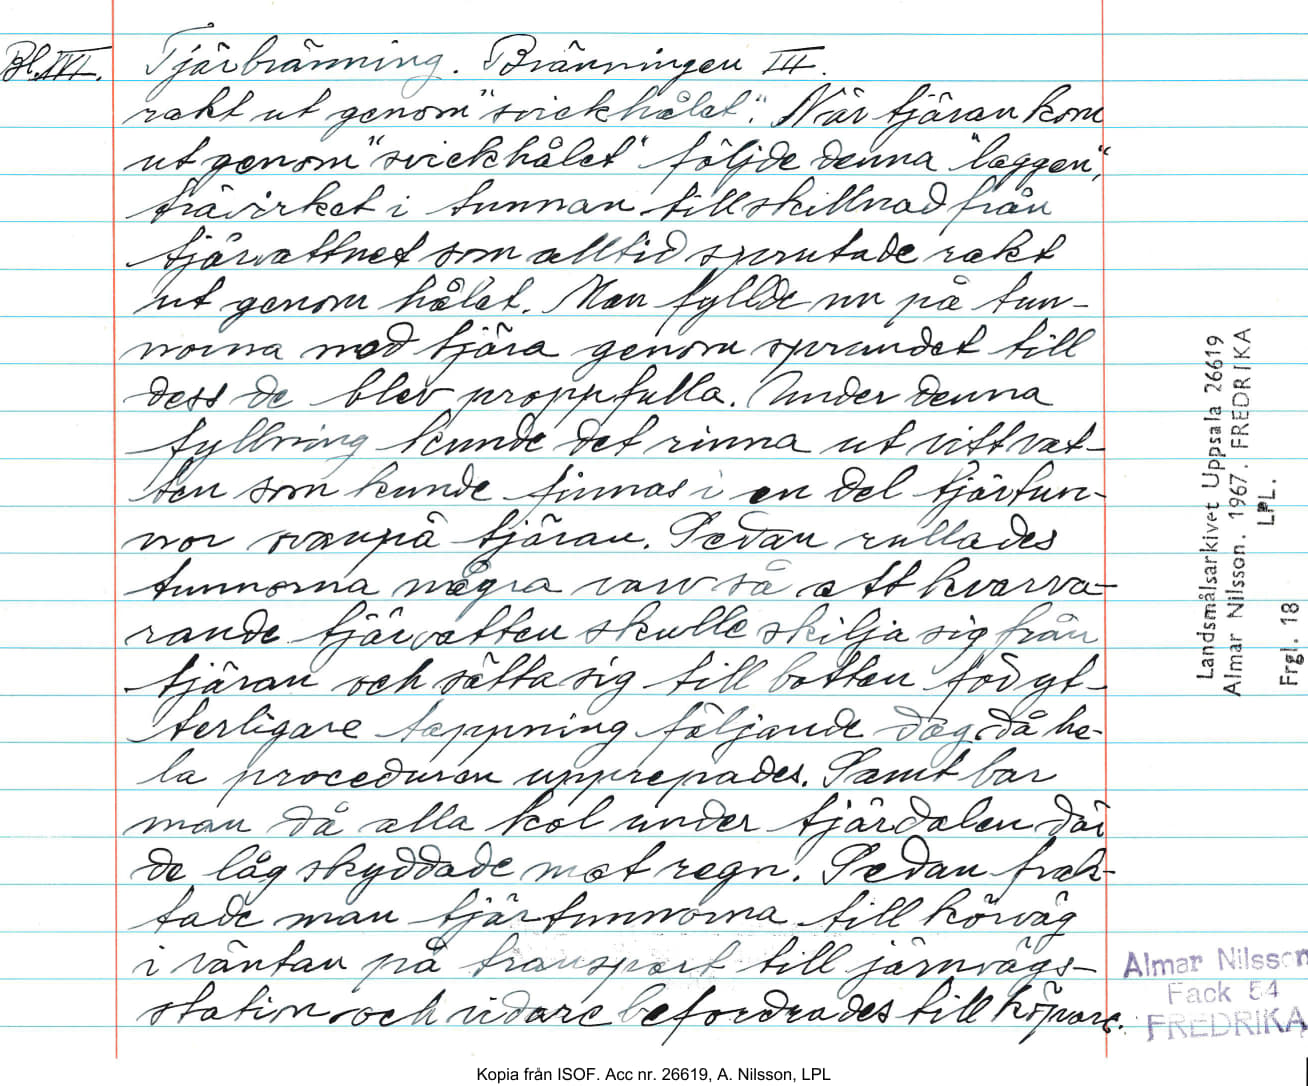 Bl. XVI. Tjärbränning. Bränningen III.
rakt ut genom "svickhålet". När tjäran kom
ut genom "svickhålet" följde denna "laggen",
trävirket i tunnan till skillnad från
tjärvattnet som alltid sprutade rakt
ut genom hålet. Man fyllde nu på tun-
norna med tjära genom sprundet till
dess de blev proppfulla. Under denna
fyllning kunde det rinna ut vitt vat-
ten som kunde finnas i en del tjärtun-
nor ovanpå tjäran. Sedan rullades
tunnorna några varv så att kvarva-
rande tjärvatten skulle skilja sig från
tjäran och sätta sig till botten för yt-
terligare tappning följande dag då he-
la proceduren upprepades. Samt bar
man då alla kol under tjärdalen där
de låg skyddade mot regn. Sedan frak-
tade man tjärtunnorna till körväg
i väntan på transport till järnvägs-
station och vidare befordrades till köpare.
Landsmålsarkivet Uppsala 26619
Almar Nilsson. 1967. FREDRIKA
LPL.
Frgl. 18
Almar Nilsson
Fack 54
FREDRIKA
Kopia från ISOF. Acc nr. 26619, A. Nilsson, LPL